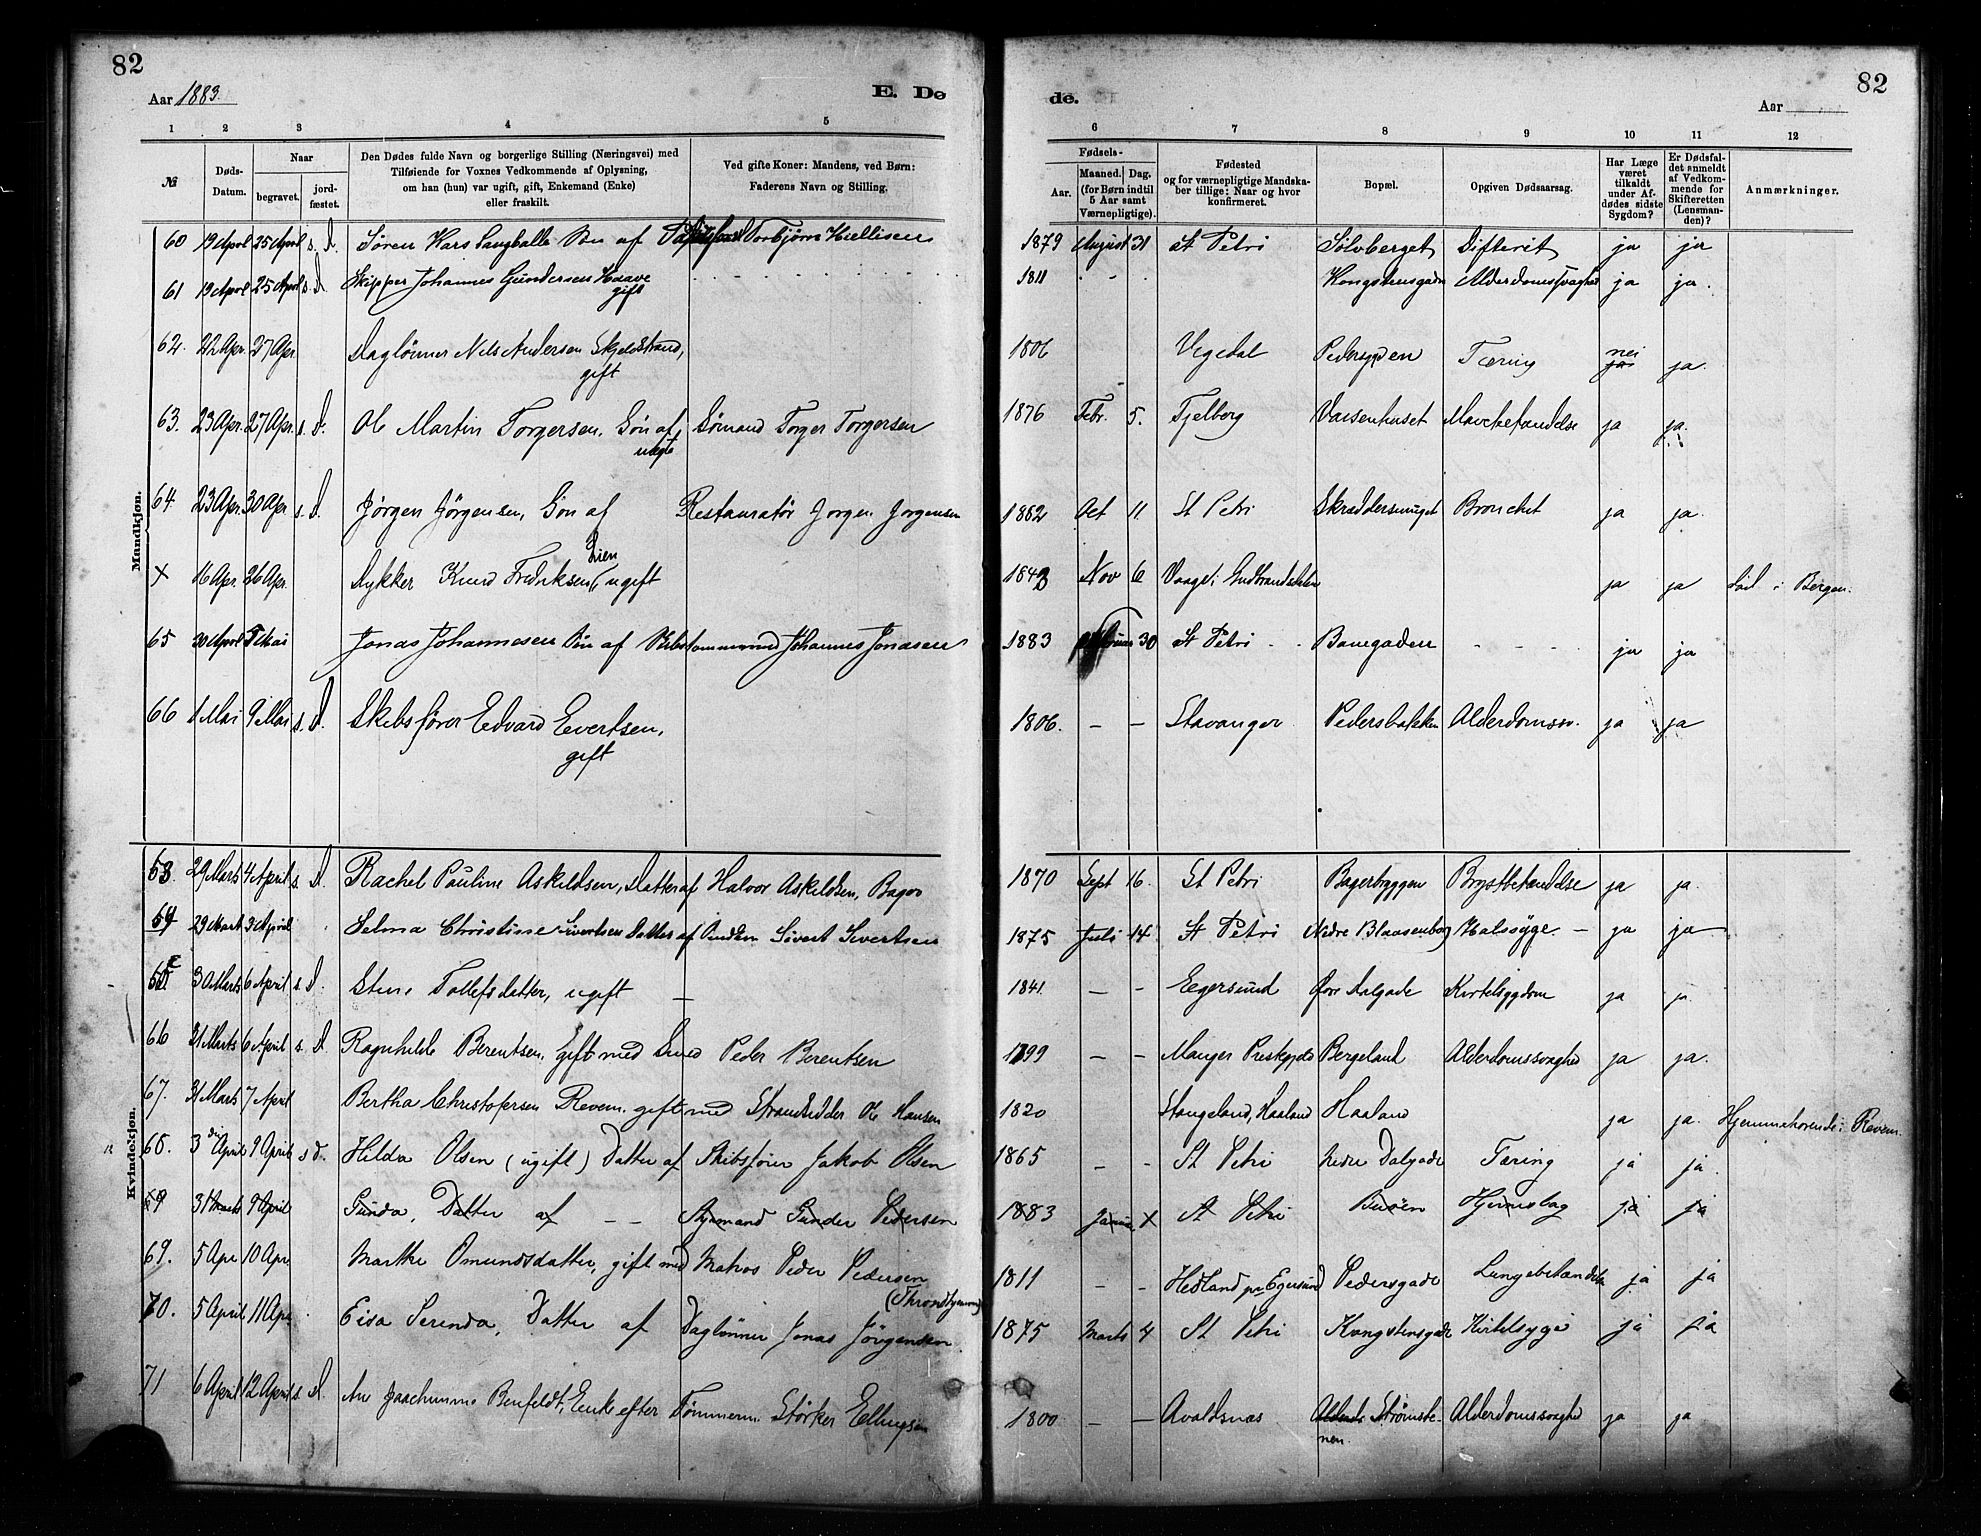 82
Aar 1883.
E. Dø
1 2 3 4 5
№
Døds-
Datum.
Naar
begravet.
jord-
fæstet.
Den Dødes fulde Navn og borgerlige Stilling (Næringsvei) med
Tilføiende for Voxnes Vedkommende af Oplysning,
om han (hun) var ugift, gift, Enkemand (Enke)
eller fraskilt.
Ved gifte Koner: Mandens, ved Børn:
Faderens Navn og Stilling.
Mandkjøn.
60 19 April 25 April s. D. Søren Kars Langballe Søn af Torbjørn Kiellisen
61 19 April 25 April s. D. Skipper Johannes Gundersen Haave
gift
62. 22 Apr. 27 Apr. Daglønner Nels Andersen Skjeldstrand,
gift
63. 23 Apr. 27 Apr. s. D. Ole Martin Torgersen, Søn af Sømand Torger Torgersen
uægte
64 23 Apr. 30 Apr s. D. Jørgen Jørgensen, Søn af Restauratør Jørgen Jørgensen
Lien
X 16 Apr. 26 Apr. Dykker Knud Fredriksen, ugift
65 30 April 5 Mai Jonas Johannesen Søn af Skibstømmermd Johannes Jonasen
66 1 Mai 9 Mai s. D. Skibsfører Edvard Evertsen,
gift
Kvindekjøn.
53. 29 Marts 4 April s. D. Rachel Pauline Askildsen, Datter af Halvor Askildsen, Bager
54 29 Marts 3 April Selma Christine Sivertsen Datter af Sivert Sivertsen
55 30 Marts 6 April s. D. Stine Tollefsdatter, ugift —
66 31 Marts 6 April s. D. Ragnhilde Berentsen, gift med Smed Peder Berentsen
67. 31 Marts 7 April Bertha Christofersen Revem. gift med Strandsidder Ole Hansen
68. 3 April 9 April s D. Hilda Olsen (ugift) Datter af Skibsfører Jakob Olsen
59 31 Marts 9 April Gunda, Datter af — — Styrmand Gunder Pedersen
69. 5 Apr 10 Apr. Marthe Omundsdatter, gift med Matros Peder Pedersen
70. 5 April 11 Apr. Elsa Serenda, Datter af Daglønner Jonas Jørgensen
71 6 April 12 April s. D. An Joachimine Benfeldt, Enke efter Tømmerm. Størker Ellingsen
82
Aar
de.
6 7 8 9 10 11 12
Fødsels-
Aar.
Maaned. Dag.
(for Børn indtil
5 Aar samt
Værnepligtige).
Fødested
og for værnepligtige Mandska-
ber tillige: Naar og hvor
konfirmeret.
Bopæl.
Opgiven Dødsaarsag.
Har Læge
været
tilkaldt
under Af-
dødes sidste
Sygdom?
Er Dødsfal-
det anmeldt
af Vedkom-
mende for
Skifteretten
(Lensman-
den)?
Anmærkninger.
1879 August 31 St Petri Sølvberget Difterit ja ja
1811 Kongsteensgaden Alderdomssvaghed ja ja.
1806 Vegedal Pedersgaden Tæring nei ja ja.
1876 Febr. 5. Fjelberg Vaisenhuset Mavebetændelse ja ja.
1862 Oct 11. St Petri Skræddersmuget Bronchit ja ja.
1843 Nov 6 Vaage i Gudbrandsdalen ja ja Død i Bergen.
1883 30 St Petri Banegaden ja ja
1806. — — Stavanger Pedersbakken Alderdomssv. ja ja
1870 Sept 16. St Petri Bagerbryggen Brystbetændelse ja ja.
1875 Juli 14. St Petri Nedre Blaasenborg Halssyge — ja ja
1841. — — Egersund Øvr Dalgade Kirtelsygdom ja ja
1799 — — Manger Prestegjeld Bergeland Alderdomssvaghed ja ja.
1820 Stangeland, Haaland Haaland ja ja. Hjemmehørende i Revem.
1865 — — St Petri Nedre Dalgade Tæring ja ja.
1883 Januar X St Petri Buøen Hjerneslag ja ja
1811 — — Hedland pr Egersund Pedersgade Lungebetændelse ja ja
1875 Marts 4 St Petri Kongsteensgade Kirtelsyge ja ja
1800 — — Avaldsnæs Strømste- Alderdomssvaghed ja ja
nen.